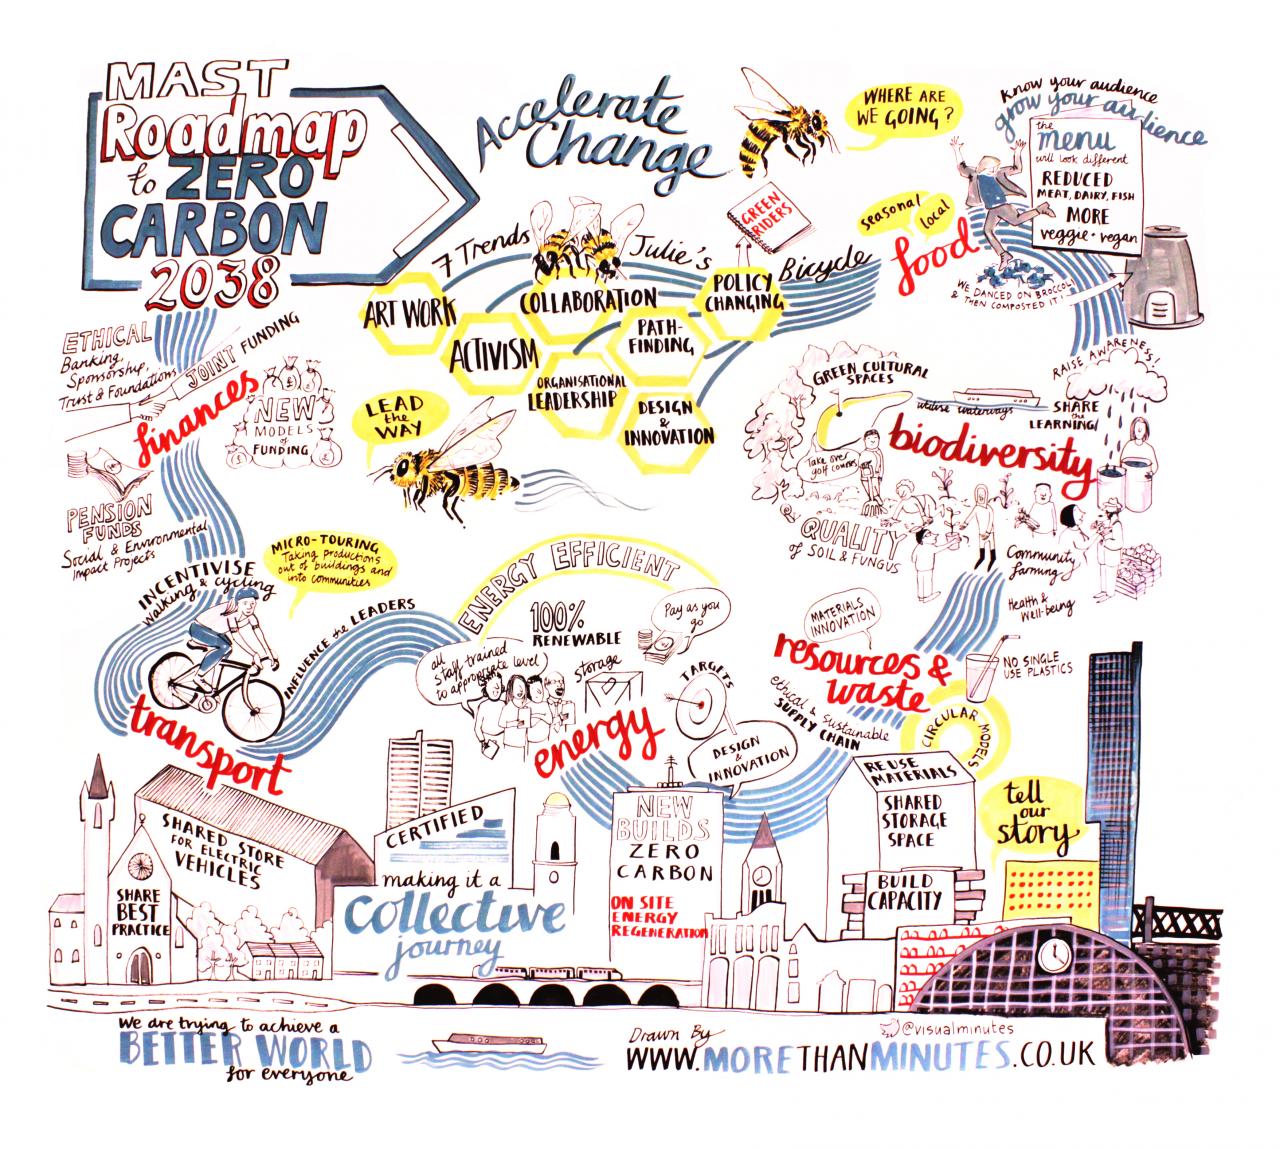 MAST
Roadmap
to ZERO
CARBON
2038
Accelerate
Change
WHERE ARE
WE GOING?
Know your audience
grow your audience
the
menu
will look different
REDUCED
MEAT, DAIRY, FISH
MORE
veggie + vegan
seasonal
local
food
WE DANCED ON BROCCOLI
& THEN COMPOSTED IT!
GREEN
RIDERS
7 Trends
Julie's
Bicycle
ART WORK
COLLABORATION
POLICY
CHANGING
ACTIVISM
PATH-
FINDING
ORGANISATIONAL
LEADERSHIP
DESIGN
&
INNOVATION
LEAD
the
WAY
ETHICAL
Banking,
Sponsorship,
Trust & Foundations
JOINT FUNDING
finances
NEW
MODELS
of
FUNDING
PENSION
FUNDS
Social & Environmental
Impact Projects
GREEN CULTURAL
SPACES
utilise waterways
RAISE AWARENESS!
SHARE
the
LEARNING/
biodiversity
Take over
golf courses
QUALITY
of SOIL & FUNGUS
Community
farming
Health &
Well-being
INCENTIVISE
walking & cycling
MICRO-TOURING
Taking productions
out of buildings and
into communities
INFLUENCE the LEADERS
transport
ENERGY EFFICIENT
100%
RENEWABLE
Pay as you
go
all
staff trained
to appropriate level
storage
TARGETS
energy
DESIGN
&
INNOVATION
MATERIALS
INNOVATION
resources &
waste
NO SINGLE
USE PLASTICS
ethical & sustainable
SUPPLY CHAIN
CIRCULAR MODELS
SHARED STORE
FOR ELECTRIC
VEHICLES
SHARE
BEST
PRACTICE
CERTIFIED
making it a
collective
journey
NEW
BUILDS
ZERO
CARBON
ON SITE
ENERGY
REGENERATION
REUSE
MATERIALS
SHARED
STORAGE
SPACE
BUILD
CAPACITY
tell
our
story
We are trying to achieve a
BETTER WORLD
for everyone
Drawn By
@visualminutes
WWW.MORETHANMINUTES.CO.UK